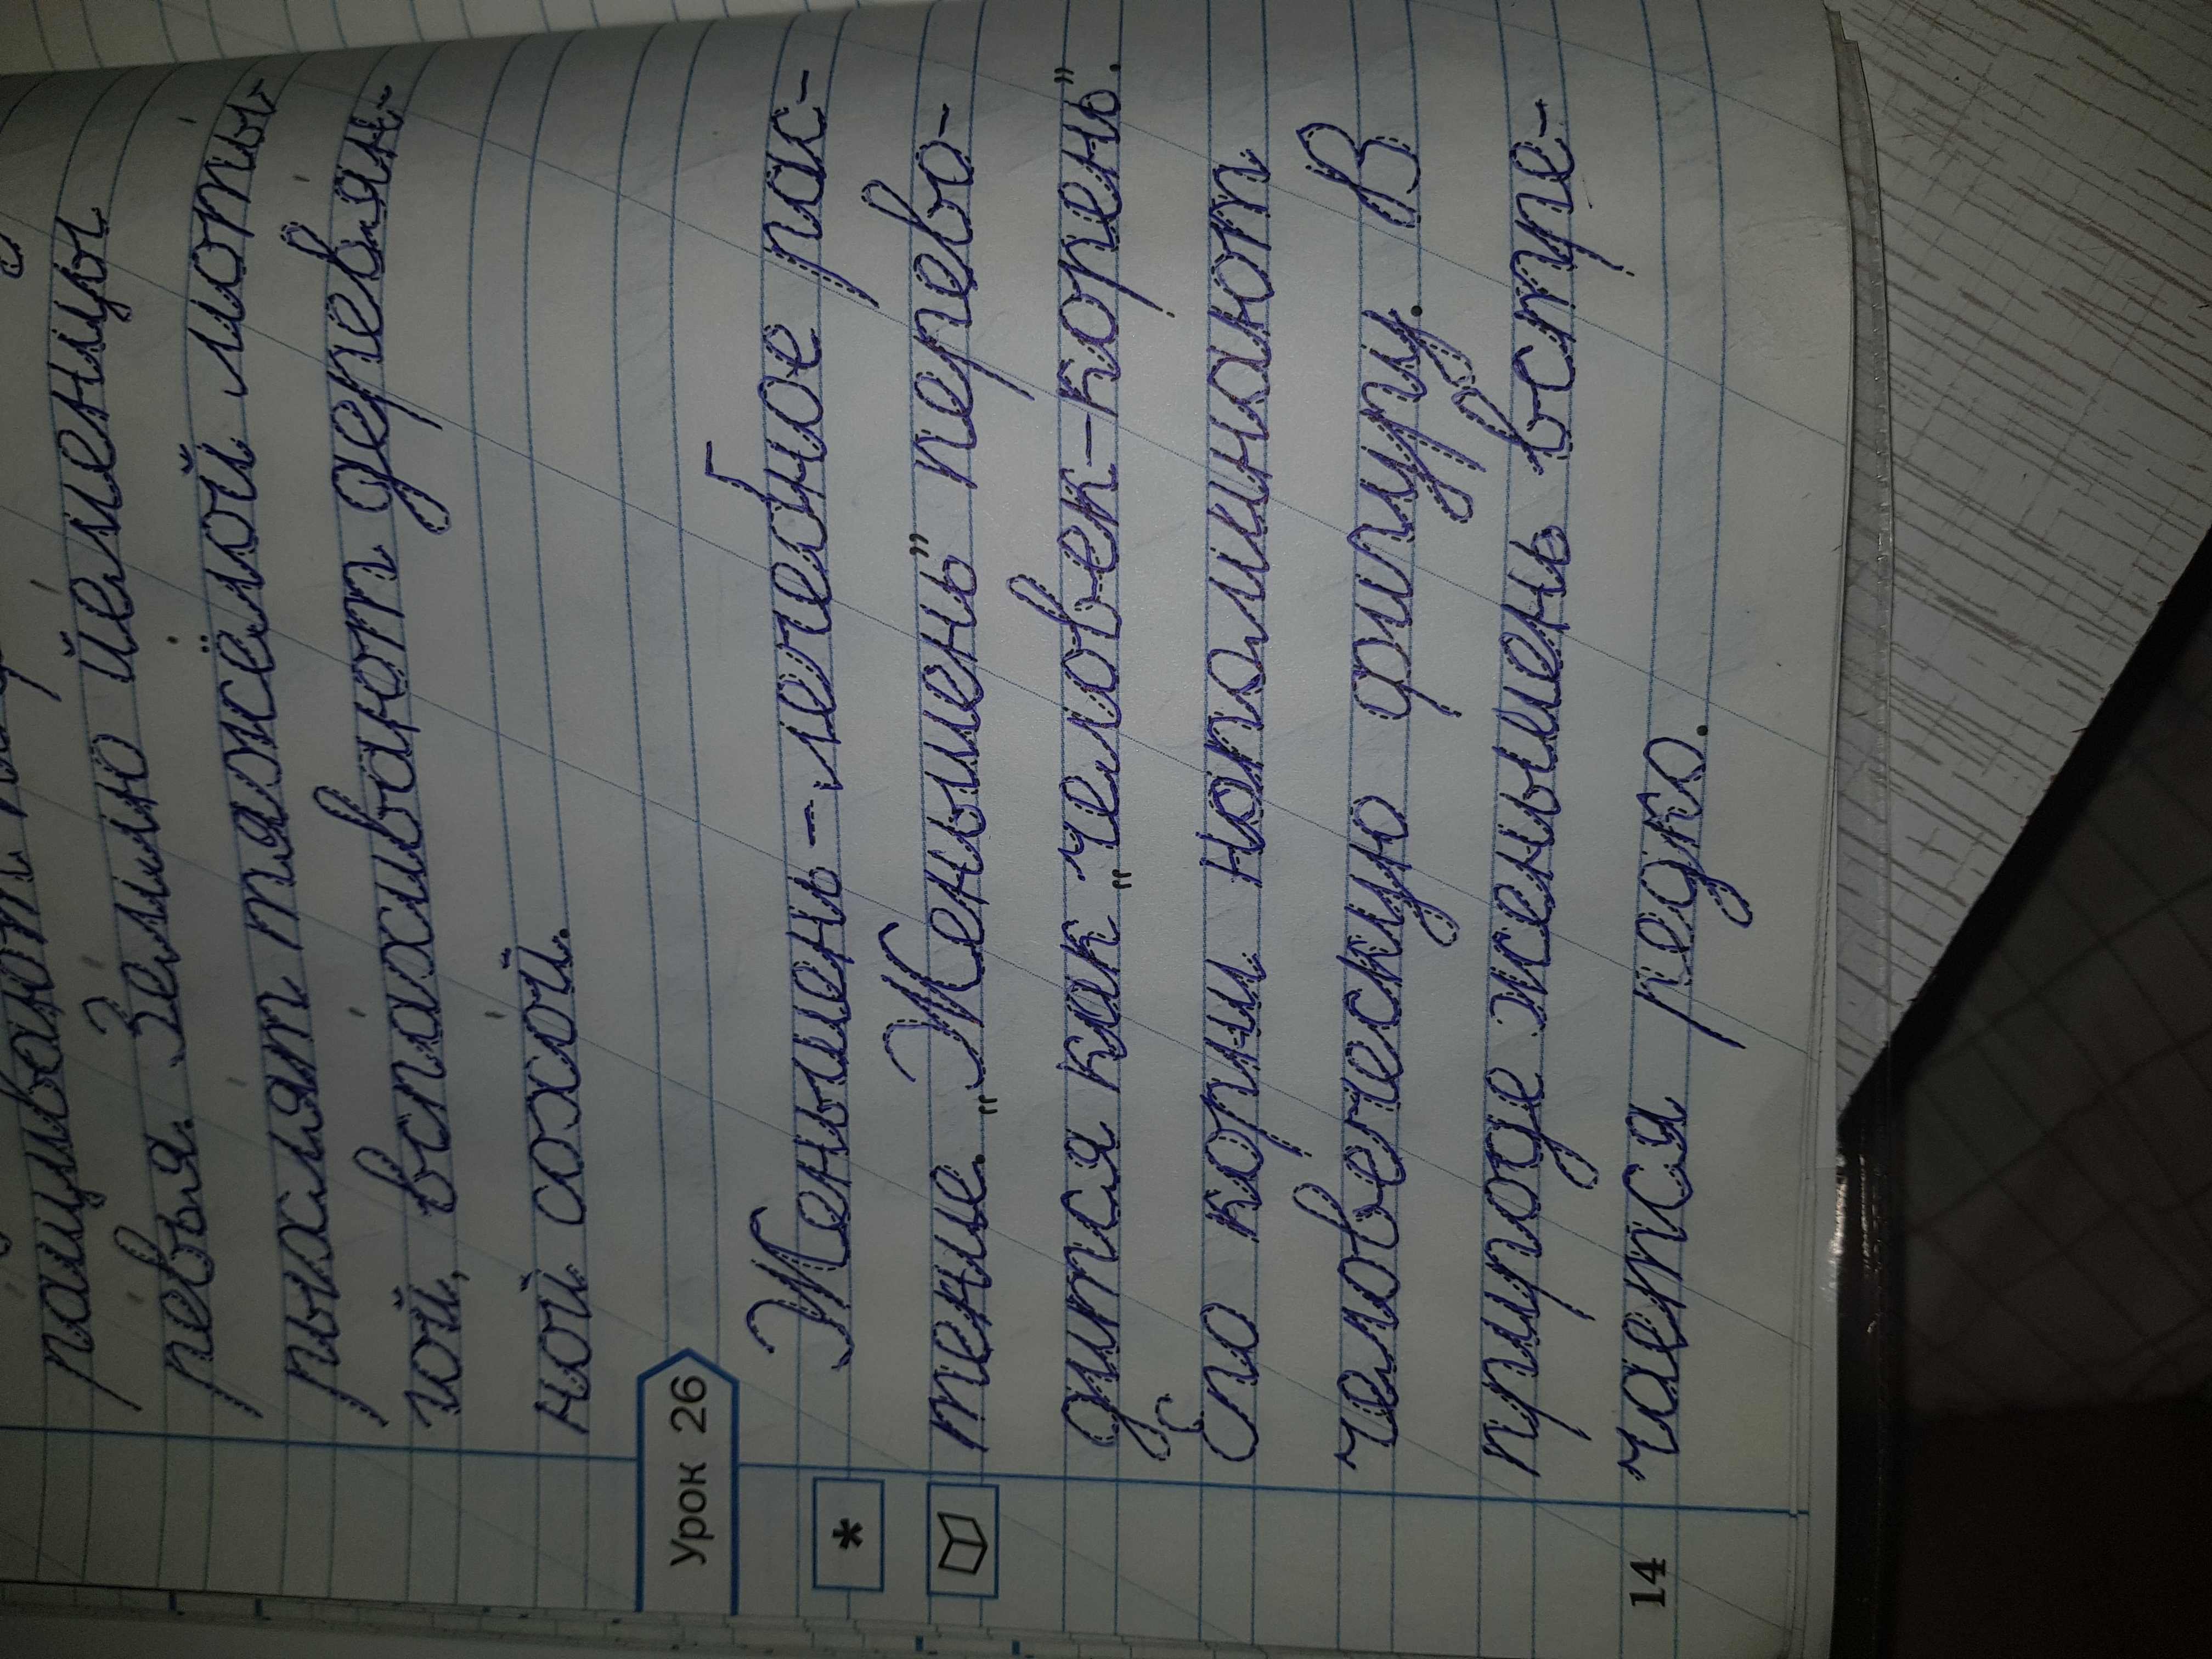 ращивают
ре́вья. Зе́млю йе́менцы
рыхля́т тяжёлой моты́-
гой, вспа́хивают деревя́н-
ной сохо́й.
Урок 26
Женьшень – лечебное рас-
*
тение. „Женьшень” перево-
дится как „человек-корень”.
Его корни напоминают
человеческую фигуру. В
природе женьшень встре-
14 чается редко.